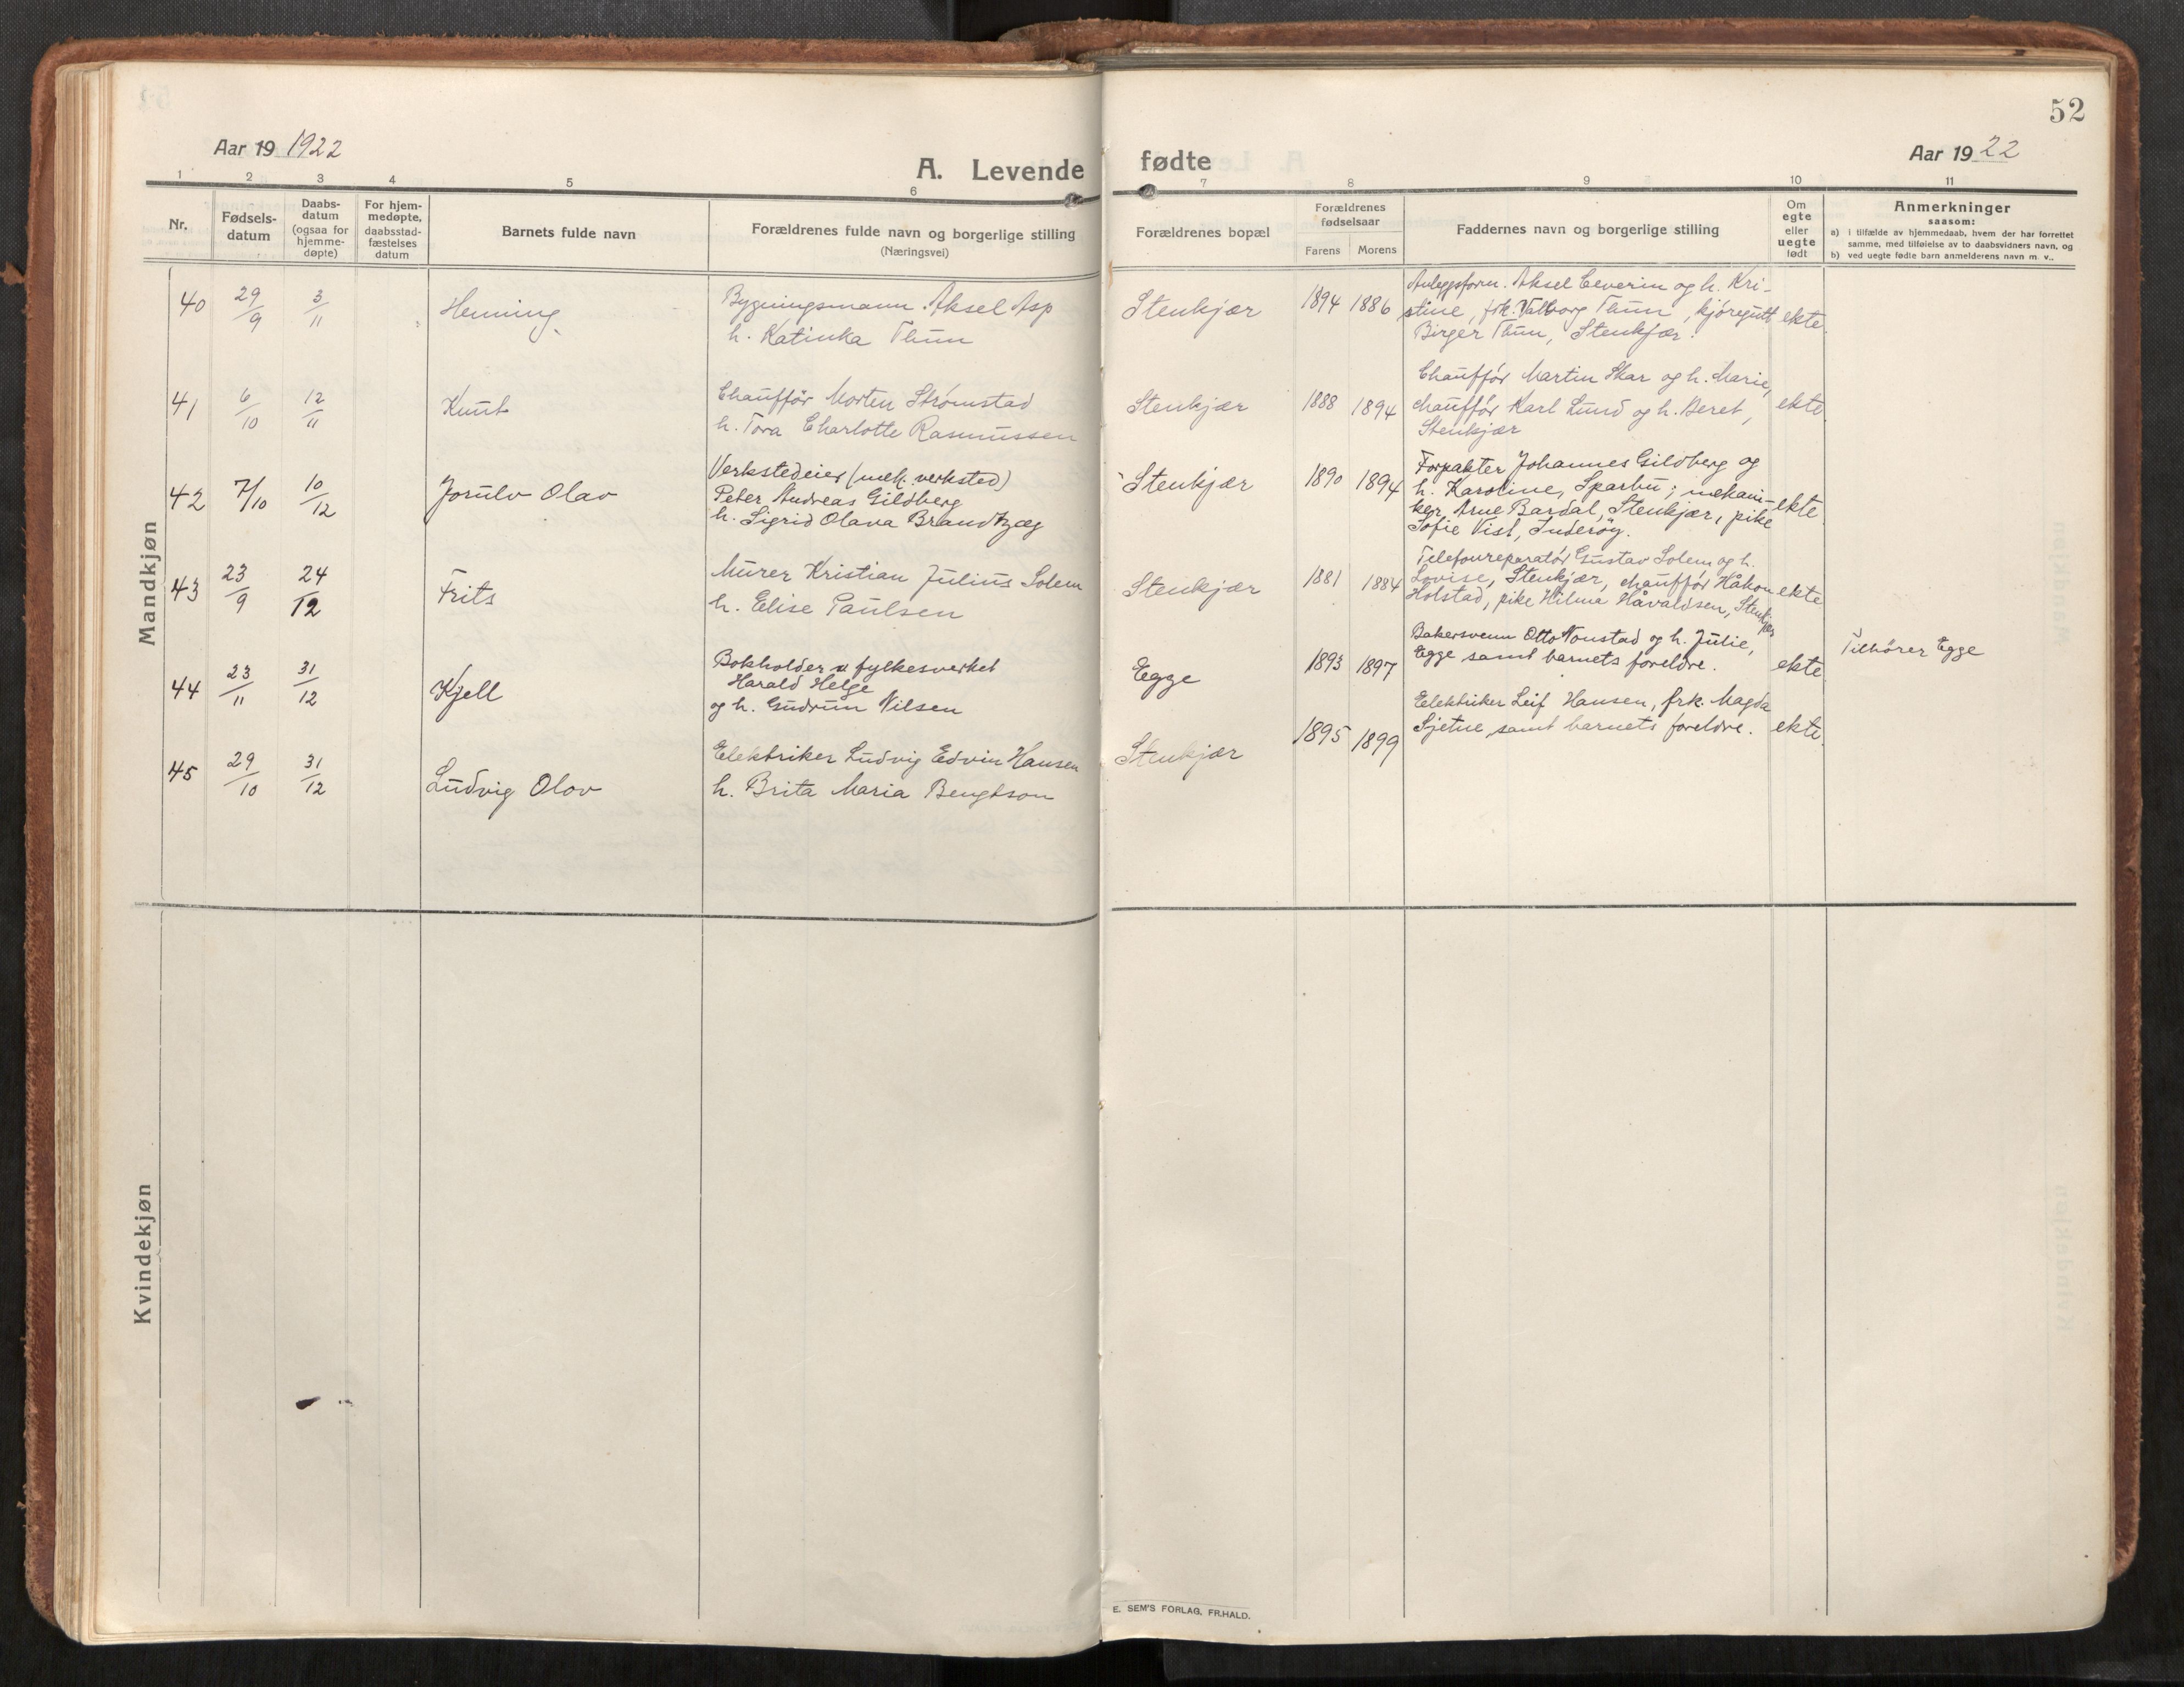 52
Aar 19 1922
A. Levende fødte
Aar 19 22
1 2 3 4 5 6 7 8 9 10 11
Nr.
Fødsels-
datum
Daabs-
datum
(ogsaa for
hjemme-
døpte)
For hjem-
medøpte,
daabsstad-
fæstelses
datum
Barnets fulde navn
Forældrenes fulde navn og borgerlige stilling
(Næringsvei)
Forældrenes bopæl
Forældrenes
fødselsaar
Farens Morens
Faddernes navn og borgerlige stilling
Om
egte
eller
uegte
født
Anmerkninger
saasom:
a) i tilfælde av hjemmedaab, hvem der har forrettet
samme, med tilføielse av to daabsvidners navn, og
b) ved uegte fødte barn anmelderens navn m. v..
Mandkjøn
40 29/9 3/11 Henning
Bygningsmann Aksel Asp
h. Katinka Thun
Stenkjær 1894 1886
Anleggsform. Aksel Ceverin og h. Kri-
stine, frk. Valborg Thun, kjøregutt
Birger Thun, Stenkjær.
ekte.
41 6/10 12/11 Knut
Chauffør Morten Strømstad
h. Tora Charlotte Rasmussen
Stenkjær 1888 1894
Chauffør Martin Skar og h. Marie,
chauffør Karl Lund og h. Beret,
Stenkjær
ekte
42 7/10 10/12 Jorulv Olav
Verkstedeier (mek. verksted)
Peter Andreas Gildberg
h. Sigrid Olava Brandtzæg
Stenkjær 1890 1894
Forpakter Johannes Gildberg og
h. Karoline, Sparbu; mekani-
ker Arne Bardal, Stenkjær, pike
Sofie Vist, Inderøy.
ekte.
43 23/9 24/12 Frits
Murer Kristian Julius Solem
h. Elise Paulsen
Stenkjær 1881 1884
Telefonreparatør Gustav Solem og h.
Lovise, Stenkjær, chauffør Håkon
Holstad, pike Hilma Håvaldsen, Stenkjær
ekte
44 23/11 31/12 Kjell
Bokholder v fylkesverket
Harald Helge
og h. Gudrun Nilsen
Egge 1893 1897
Bakersvenn Otto Nonstad og h. Julie,
Egge samt barnets foreldre.
ekte
Tilhører Egge
45 29/10 31/12 Ludvig Olov
Elektriker Ludvig Edvin Hansen
h. Brita Maria Bengtson
Stenkjær 1895 1899
Elektriker Leif Hansen, frk. Magda
Sjetne samt barnets foreldre.
ekte.
Kvindekjøn
E. SEM'S FORLAG, FR.HALD.